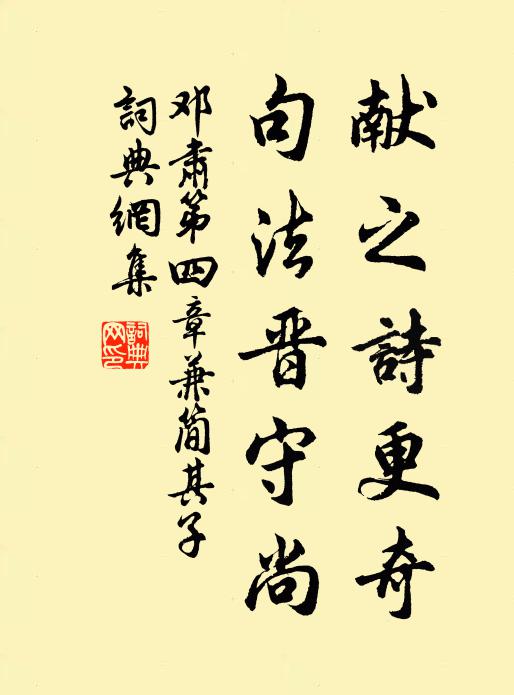 献之詩更奇
句法晋守尚
邓肅第四章兼简其子
詞典網集
詞典
网印